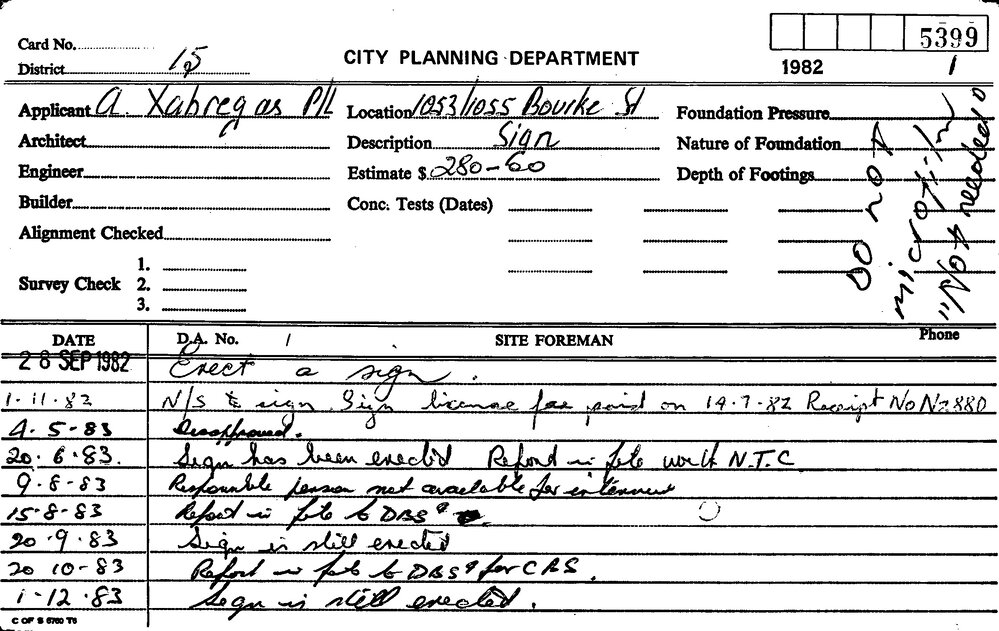 5399
Card No.
District 15
CITY PLANNING DEPARTMENT
1982 1
Applicant A. Xabregas P/L Location 1053/1055 Bourke St Foundation Pressure
Architect Description Sign Nature of Foundation
Engineer Estimate $ 280-60 Depth of Footings
Builder Conc. Tests (Dates)
Alignment Checked
Survey Check 1.
2.
3.
DO NOT
microfilm
"Not needed"
DATE D.A. No. / SITE FOREMAN Phone
28 SEP 1982 Erect a sign.
1-11-82 N/S sign. Sign license fee paid on 14-7-82 Receipt No N2880
4-5-83 Disapproved.
20.6.83. Sign has been erected Report in file N.T.C.
9-8-83 Responsible person not available for interview
15-8-83 Report in file to DBS
20.9.83 Sign is still erected
20 10-83 Report in file to DBS for CBS.
1-12.83 Sign is still erected.
C OF S 6760 T6